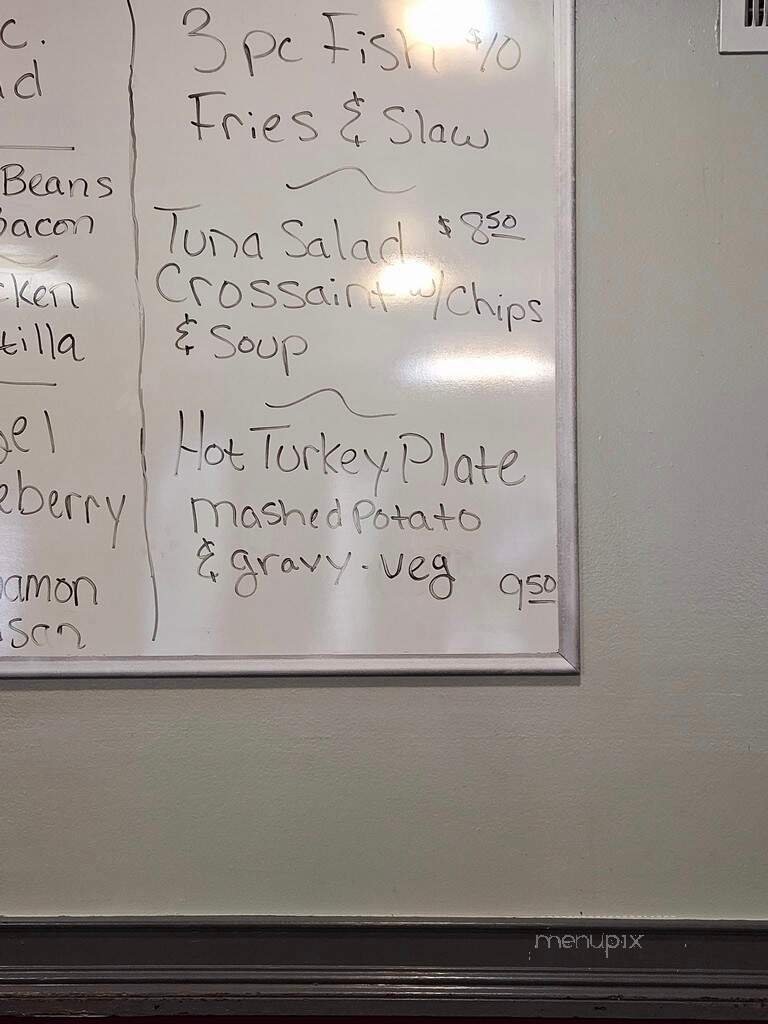 c.
d
Beans
bacon
cken
tilla
gel
eberry
amon
san
3 pc Fish $10
Fries & Slaw
Tuna Salad $8 50
Crossaint w/ Chips
& Soup
Hot Turkey Plate
mashed Potato
& gravy. veg 9 50
menupix